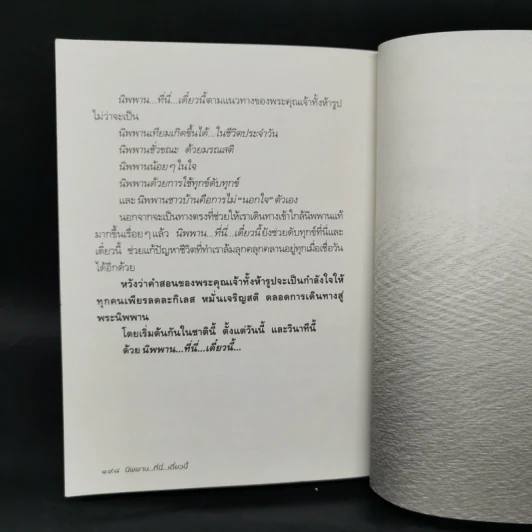 นิพพาน...ที่นี่...เดี๋ยวนี้ตามแนวทางของพระคุณเจ้าทั้งห้ารูป
ไม่ว่าจะเป็น
นิพพานเทียมเกิดขึ้นได้...ในชีวิตประจำวัน
นิพพานชั่วขณะ ด้วยมรณสติ
นิพพานน้อยๆ ในใจ
นิพพานด้วยการใช้ทุกข์ดับทุกข์
และ นิพพานชาวบ้านคือการไม่ “นอกใจ” ตัวเอง
นอกจากจะเป็นทางตรงที่ช่วยให้เราเดินทางเข้าใกล้นิพพานแท้
มากขึ้นเรื่อยๆ แล้ว นิพพาน...ที่นี่...เดี๋ยวนี้ ยังช่วยดับทุกข์ที่นี่และ
เดี๋ยวนี้ ช่วยแก้ปัญหาชีวิตที่ทำเราล้มลุกคลุกคลานอยู่ทุกเมื่อเชื่อวัน
ได้อีกด้วย
หวังว่าคำสอนของพระคุณเจ้าทั้งห้ารูปจะเป็นกำลังใจให้
ทุกคนเพียรลดละกิเลส หมั่นเจริญสติ ตลอดการเดินทางสู่
พระนิพพาน
โดยเริ่มต้นกันในชาตินี้ ตั้งแต่วันนี้ และวินาทีนี้
ด้วย นิพพาน...ที่นี่...เดี๋ยวนี้...
๑๙๘ นิพพาน...ที่นี่...เดี๋ยวนี้